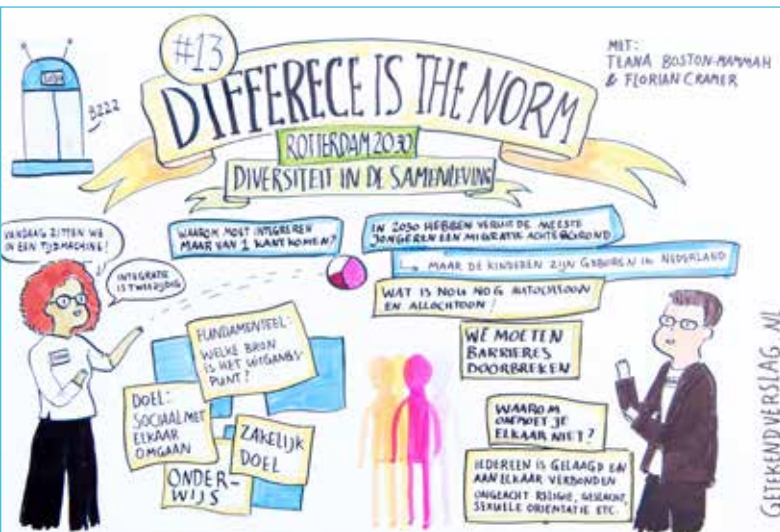 #13
DIFFERECE IS THE NORM
ROTTERDAM 2030
DIVERSITEIT IN DE SAMENLEVING
MET:
TEANA BOSTON-MAMMAH
& FLORIAN CRAMER
2030
BZZZ
VANDAAG ZITTEN WE
IN EEN TIJDMACHINE!
INTEGRATIE
IS TWEEZIJDIG
WAAROM MOET INTEGREREN
MAAR VAN 1 KANT KOMEN?
IN 2030 HEBBEN VERUIT DE MEESTE
JONGEREN EEN MIGRATIE ACHTERGROND
MAAR DE KINDEREN ZIJN GEBOREN IN NEDERLAND
WAT IS NOU NOG AUTOCHTOON
EN ALLOCHTOON!
FUNDAMENTEEL:
WELKE BRON
IS HET UITGANGS-
PUNT?
DOEL:
SOCIAAL MET
ELKAAR
OMGAAN
ZAKELIJK
DOEL
ONDER-
WIJS
WE MOETEN
BARRIERES
DOORBREKEN
WAAROM
ONTMOET JE
ELKAAR NIET?
IEDEREEN IS GELAAGD EN
AAN ELKAAR VERBONDEN
ONGEACHT RELIGIE, GESLACHT,
SEXUELE ORIENTATIE ETC.
GETEKENDVERSLAG.NL